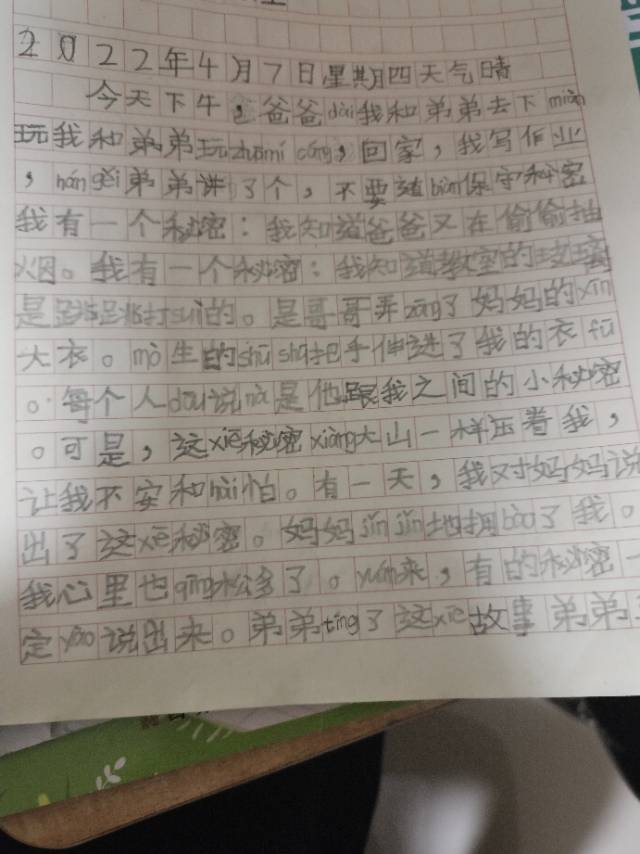 2022年4月7日星期四天气晴
今天下午,爸爸dài我和弟弟去下miàn
玩我和弟弟玩zhuōmí cáng,回家,我写作业
,hángěi弟弟讲了个,不要随biàn保守秘密
我有一个秘密:我知道爸爸又在偷偷抽
烟。我有一个秘密:我知道教室的玻璃
是跳跳打suì的。是哥哥弄zāng了妈妈的xīn
大衣。mò生的shū shu把手伸进了我的衣fú
。每个人dōu说nà是他跟我之间的小秘密
。可是,这xiē秘密xiàng大山一样压着我,
让我不安和hài怕。有一天,我对妈妈说
出了这xiē秘密。妈妈jǐn jǐn地拥bào了我。
我心里也qīng松多了。yuán来,有的秘密一
定yào说出来。弟弟tīng了这xiē故事弟弟